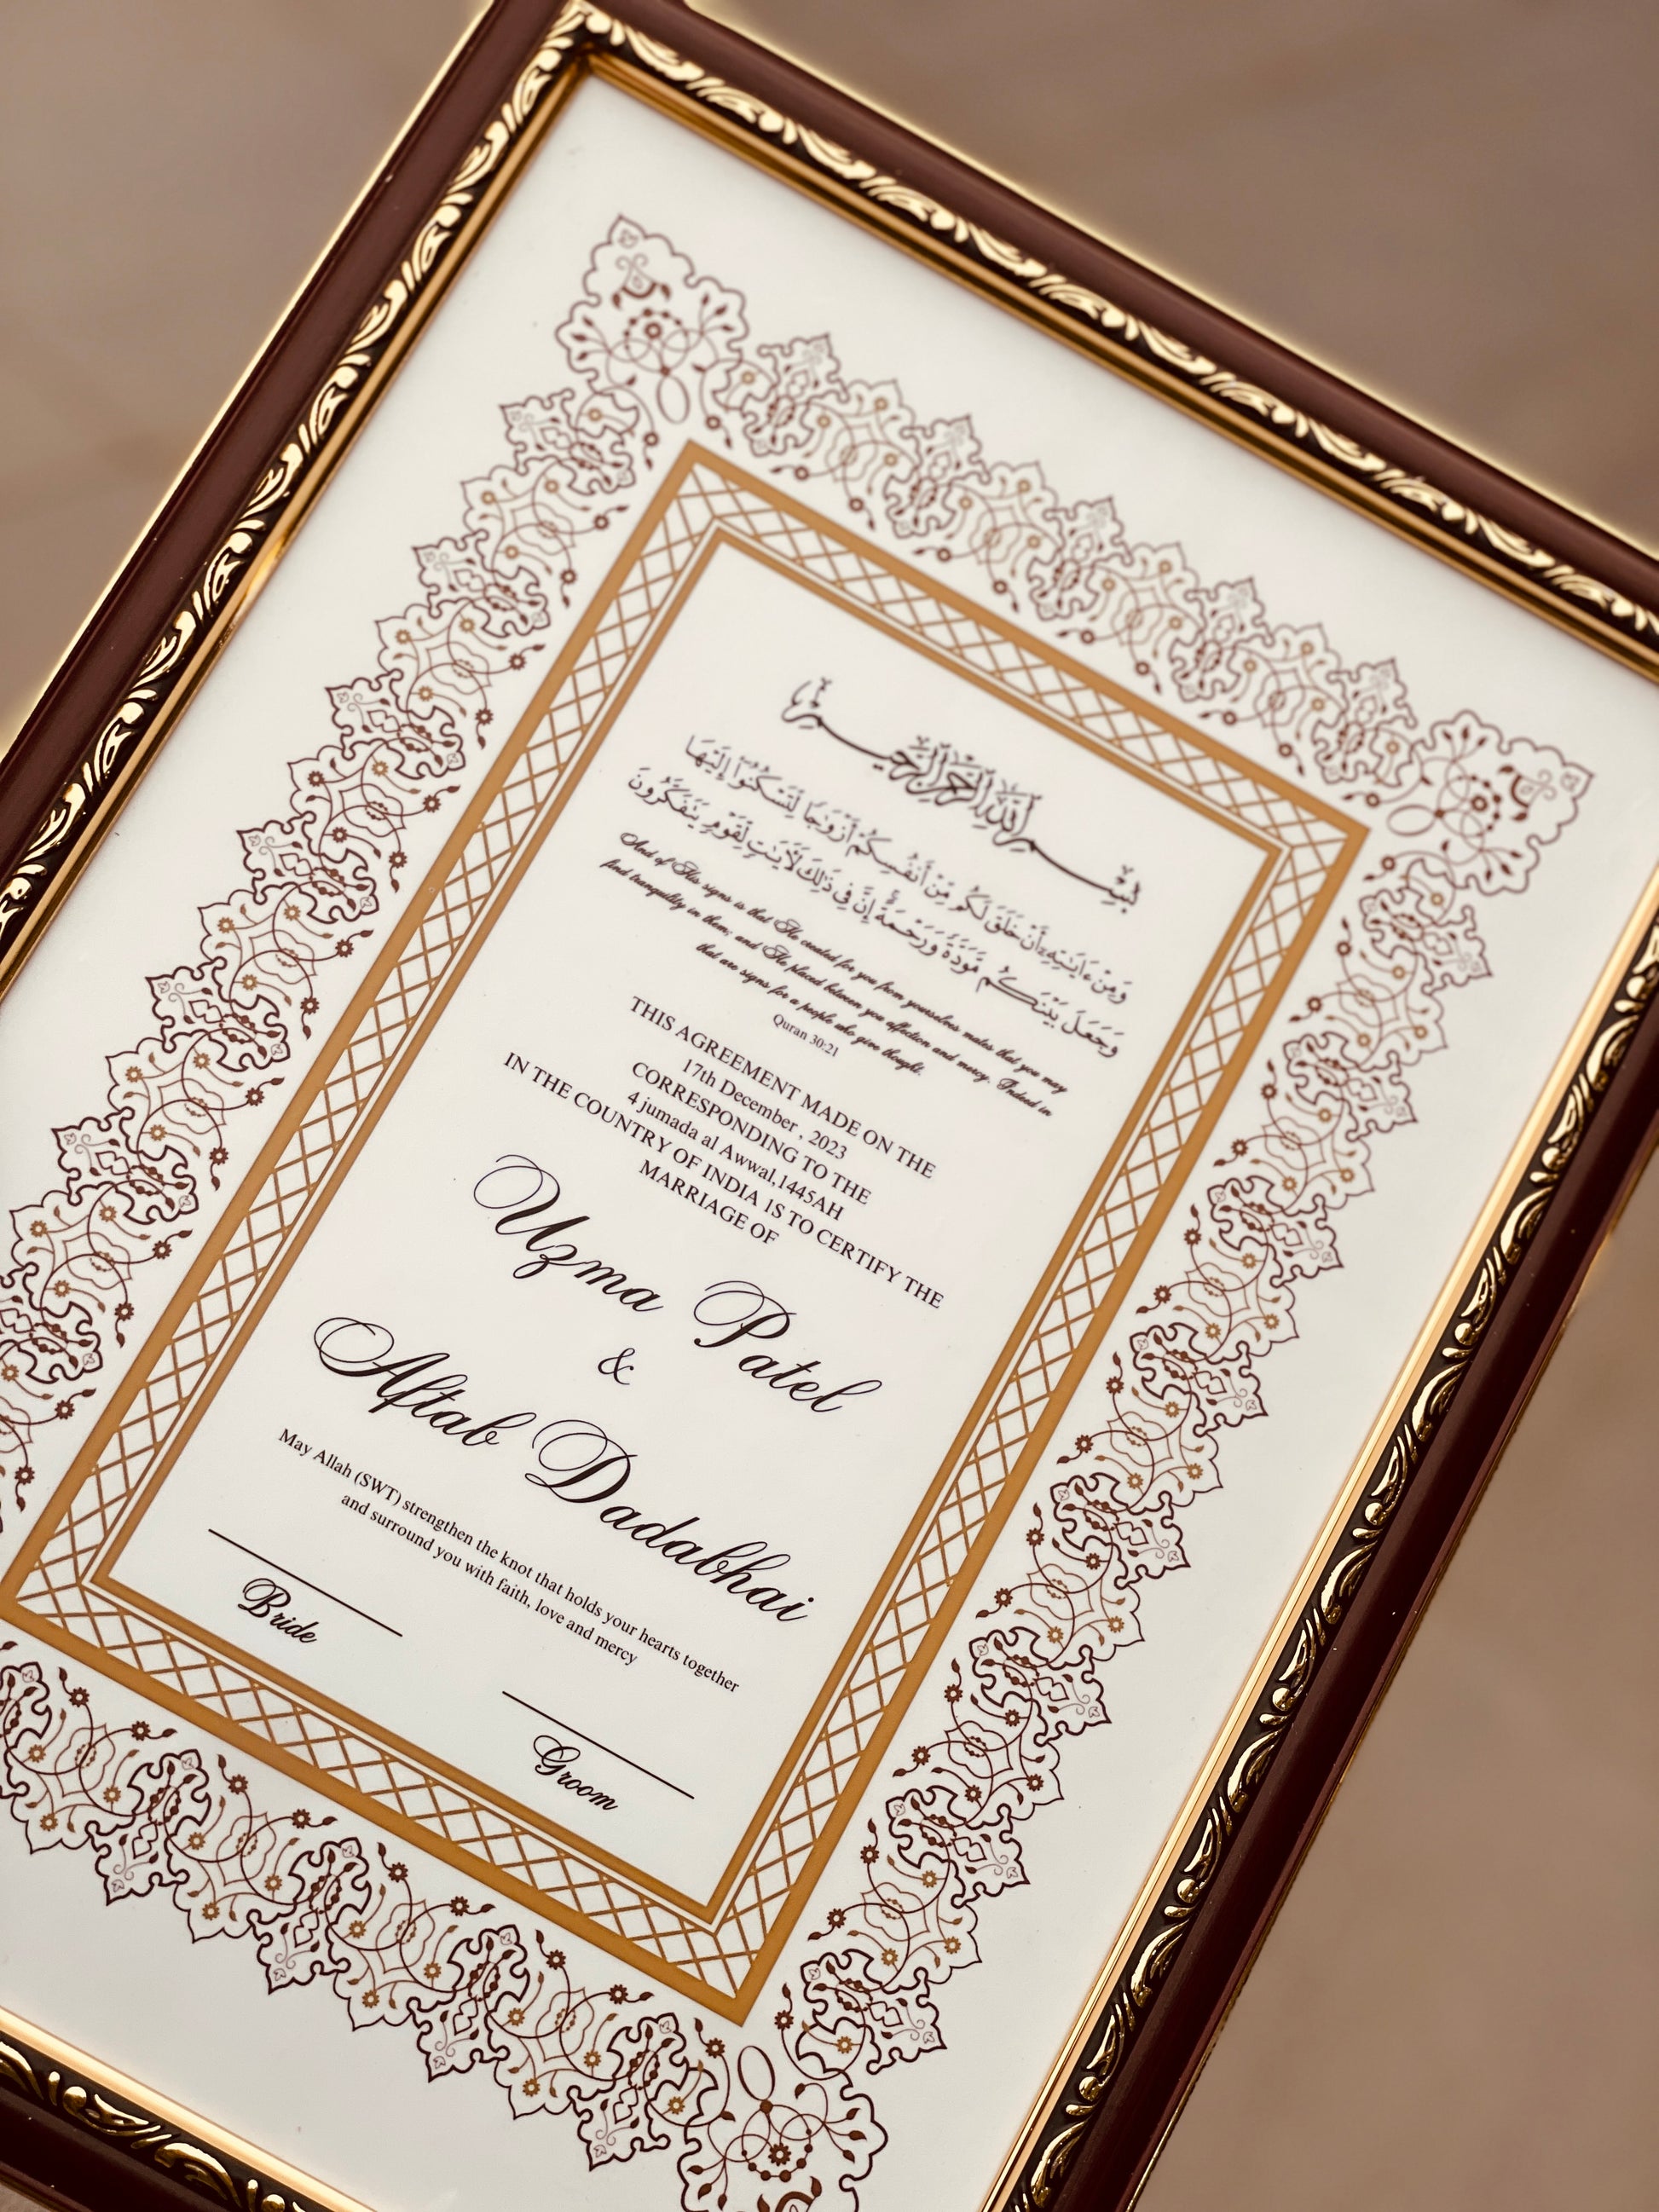 بِسْمِ اللَّهِ الرَّحْمَٰنِ الرَّحِيمِ
وَمِنْ ءَايَٰتِهِۦٓ أَنْ خَلَقَ لَكُم مِّنْ أَنفُسِكُمْ أَزْوَٰجًا لِّتَسْكُنُوٓا۟ إِلَيْهَا
وَجَعَلَ بَيْنَكُم مَّوَدَّةً وَرَحْمَةً إِنَّ فِى ذَٰلِكَ لَءَايَٰتٍ لِّقَوْمٍ يَتَفَكَّرُونَ
And of His signs is that He created for you from yourselves mates that you may
find tranquility in them; and He placed between you affection and mercy. Indeed in
that are signs for a people who give thought.
Quran 30:21
THIS AGREEMENT MADE ON THE
17th December , 2023
CORRESPONDING TO THE
4 jumada al Awwal,1445AH
IN THE COUNTRY OF INDIA IS TO CERTIFY THE
MARRIAGE OF
Uzma Patel
&
Aftab Dadabhai
May Allah (SWT) strengthen the knot that holds your hearts together
and surround you with faith, love and mercy
Bride
Groom